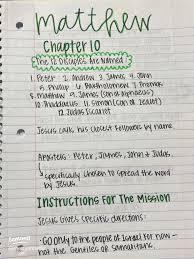 Matthew
Chapter 10
The 12 Disciples Are Named
1. Peter 2. Andrew 3. James 4. John
5. Phillip 6. Bartholomew 7. Thomas
8. Matthew 9. James (son of Alphaeus)
10. Thaddaeus 11. Simon (the Zealot)
12. Judas Iscariot
Jesus calls his closest followers by name.
Apostles: Peter, James, John + Judas
specifically chosen to spread the word
by Jesus.
Instructions For The Mission
Jesus gives specific directions:
- GO only to the people of Israel for now –
not the Gentiles or Samaritans.